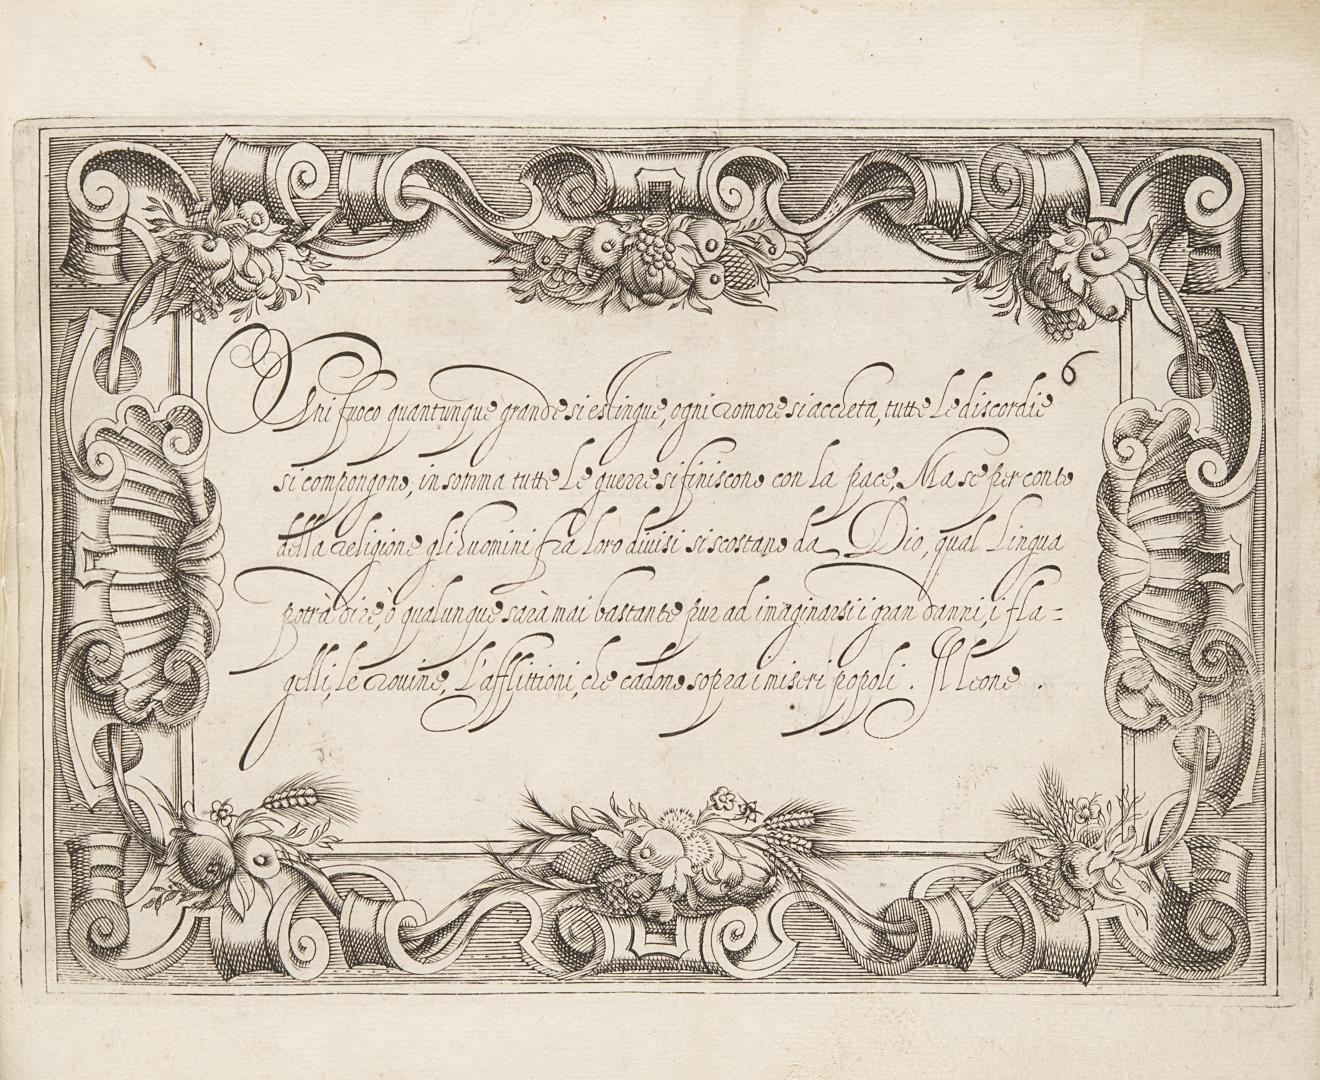 6
Ogni fuoco quantunque grande si estingue, ogni romore si accheta, tutte le discordie
si compongono, in somma tutte le guerre si finiscono con la pace, Ma se per conto
della religione gli huomini fra loro divisi si scostano da Dio, qual lingua
potrà dire, ò qualunque sarà mai bastante pur ad imaginarsi i gran danni, i fla=
gelli, le rovine, l'afflittioni, che cadono sopra i miseri popoli. Il Leone.